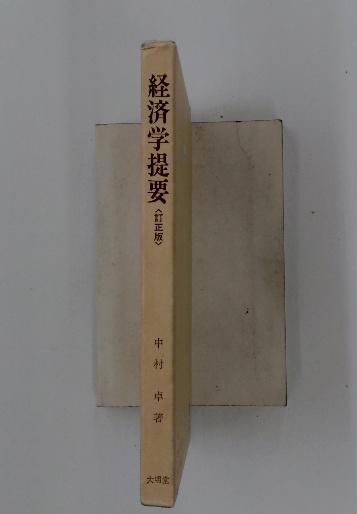 経済学提要
〈訂正版〉
中村 卓 著
大明堂